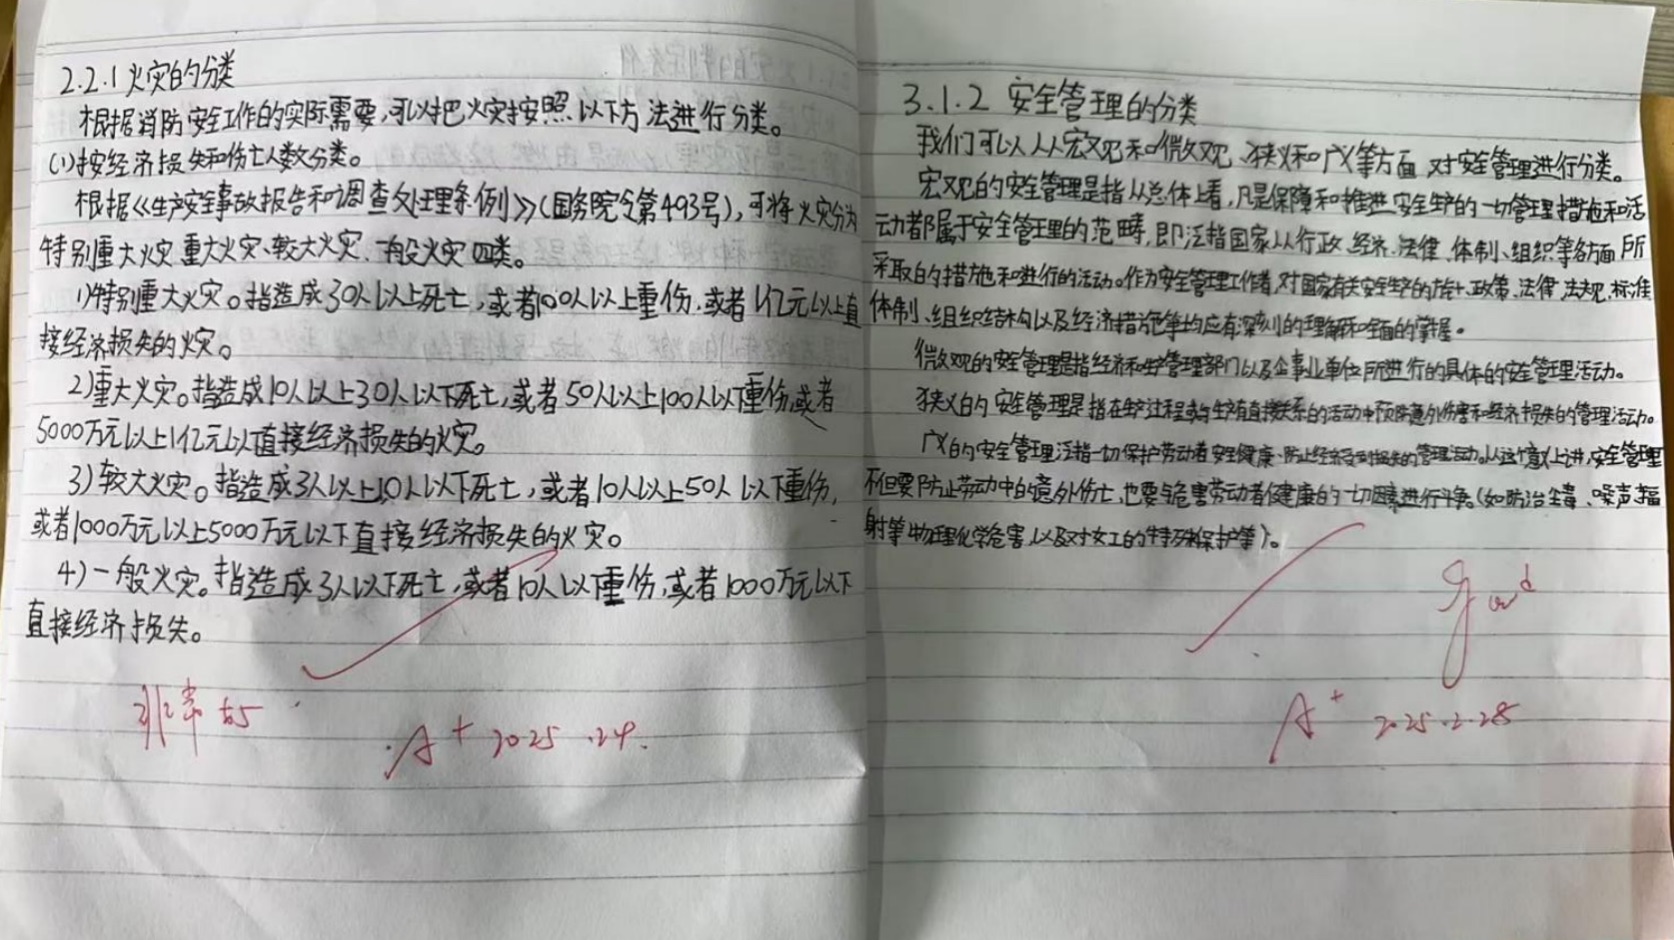 2.2.1 火灾的分类
根据消防安全工作的实际需要,可以把火灾按照以下方法进行分类。
(1)按经济损失和伤亡人数分类。
根据《生产安全事故报告和调查处理条例》(国务院令第493号),可将火灾分为
特别重大火灾、重大火灾、较大火灾、一般火灾四类。
1)特别重大火灾。指造成30人以上死亡,或者100人以上重伤,或者1亿元以上直
接经济损失的火灾。
2)重大火灾。指造成10人以上30人以下死亡,或者50人以上100人以下重伤,或者
5000万元以上1亿元以下直接经济损失的火灾。
3)较大火灾。指造成3人以上10人以下死亡,或者10人以上50人以下重伤,
或者1000万元以上5000万元以下直接经济损失的火灾。
4)一般火灾。指造成3人以下死亡,或者10人以下重伤,或者1000万元以下
直接经济损失。
非常好
A+ 2025.24.
3.1.2 安全管理的分类
我们可以从宏观和微观、狭义和广义等方面对安全管理进行分类。
宏观的安全管理是指从总体上看,凡是保障和推进安全生产的一切管理措施和活
动都属于安全管理的范畴,即泛指国家从行政、经济、法律、体制、组织等各方面所
采取的措施和进行的活动。作为安全管理工作者,对国家有关安全生产的方针、政策、法律、法规、标准、
体制、组织结构以及经济措施等均应有深刻的理解和全面的掌握。
微观的安全管理是指经济和生产管理部门以及企事业单位所进行的具体的安全管理活动。
狭义的安全管理是指在生产过程或与生产有直接关系的活动中预防意外伤害和经济损失的管理活动。
广义的安全管理泛指一切保护劳动者安全健康、防止经济受到损失的管理活动。从这个意义上讲,安全管理
不但要防止劳动中的意外伤亡,也要与危害劳动者健康的一切因素进行斗争。(如防治尘毒、噪声、辐
射等物理化学危害,以及对女工的特殊保护等)。
good
A+ 2025.2.28